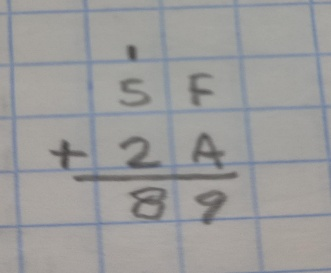 1
5 F
+ 2 A
8 9